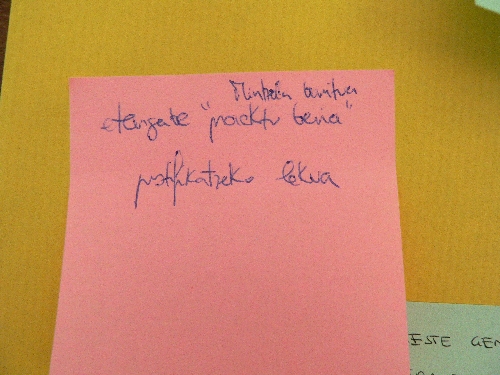 Mintzen burutva
etengabe "proiektu berria"
justifikatzeko lekua
ESTE GEN